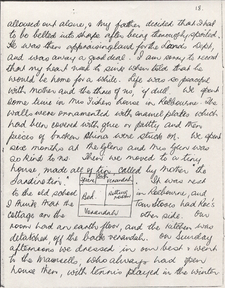 18
allowed out alone, & my father decided that I had
to be belted into shape after being thoroughly spoiled.
He was then approving land for the Lands Dept,
and was away a good deal. I am sorry to record
that my heart used to sink when told that he
would be home for a while. Life was so peaceful
with Mother and the three of us, if dull. We spent
some time in Mrs house in Melbourne. The
walls were ornamented with enamel plates which
had been covered with glue or putty and then
pieces of broken china were stuck on. We spent
six months at the Glens and Mrs Glen was
so kind to us. Then we moved to a tiny
house, made all of tin called by Mother "the
Sardine tin". It was next
to the old school in and
I think that the has
cottage on the other side. Our
room had an earth floor, and the kitchen was
detached off the back verandah. On Sunday
afternoons we dressed in our best & went
to the who always had open
house then, with tennis played in the winter
verandah
Bed
sitting room
Verandah